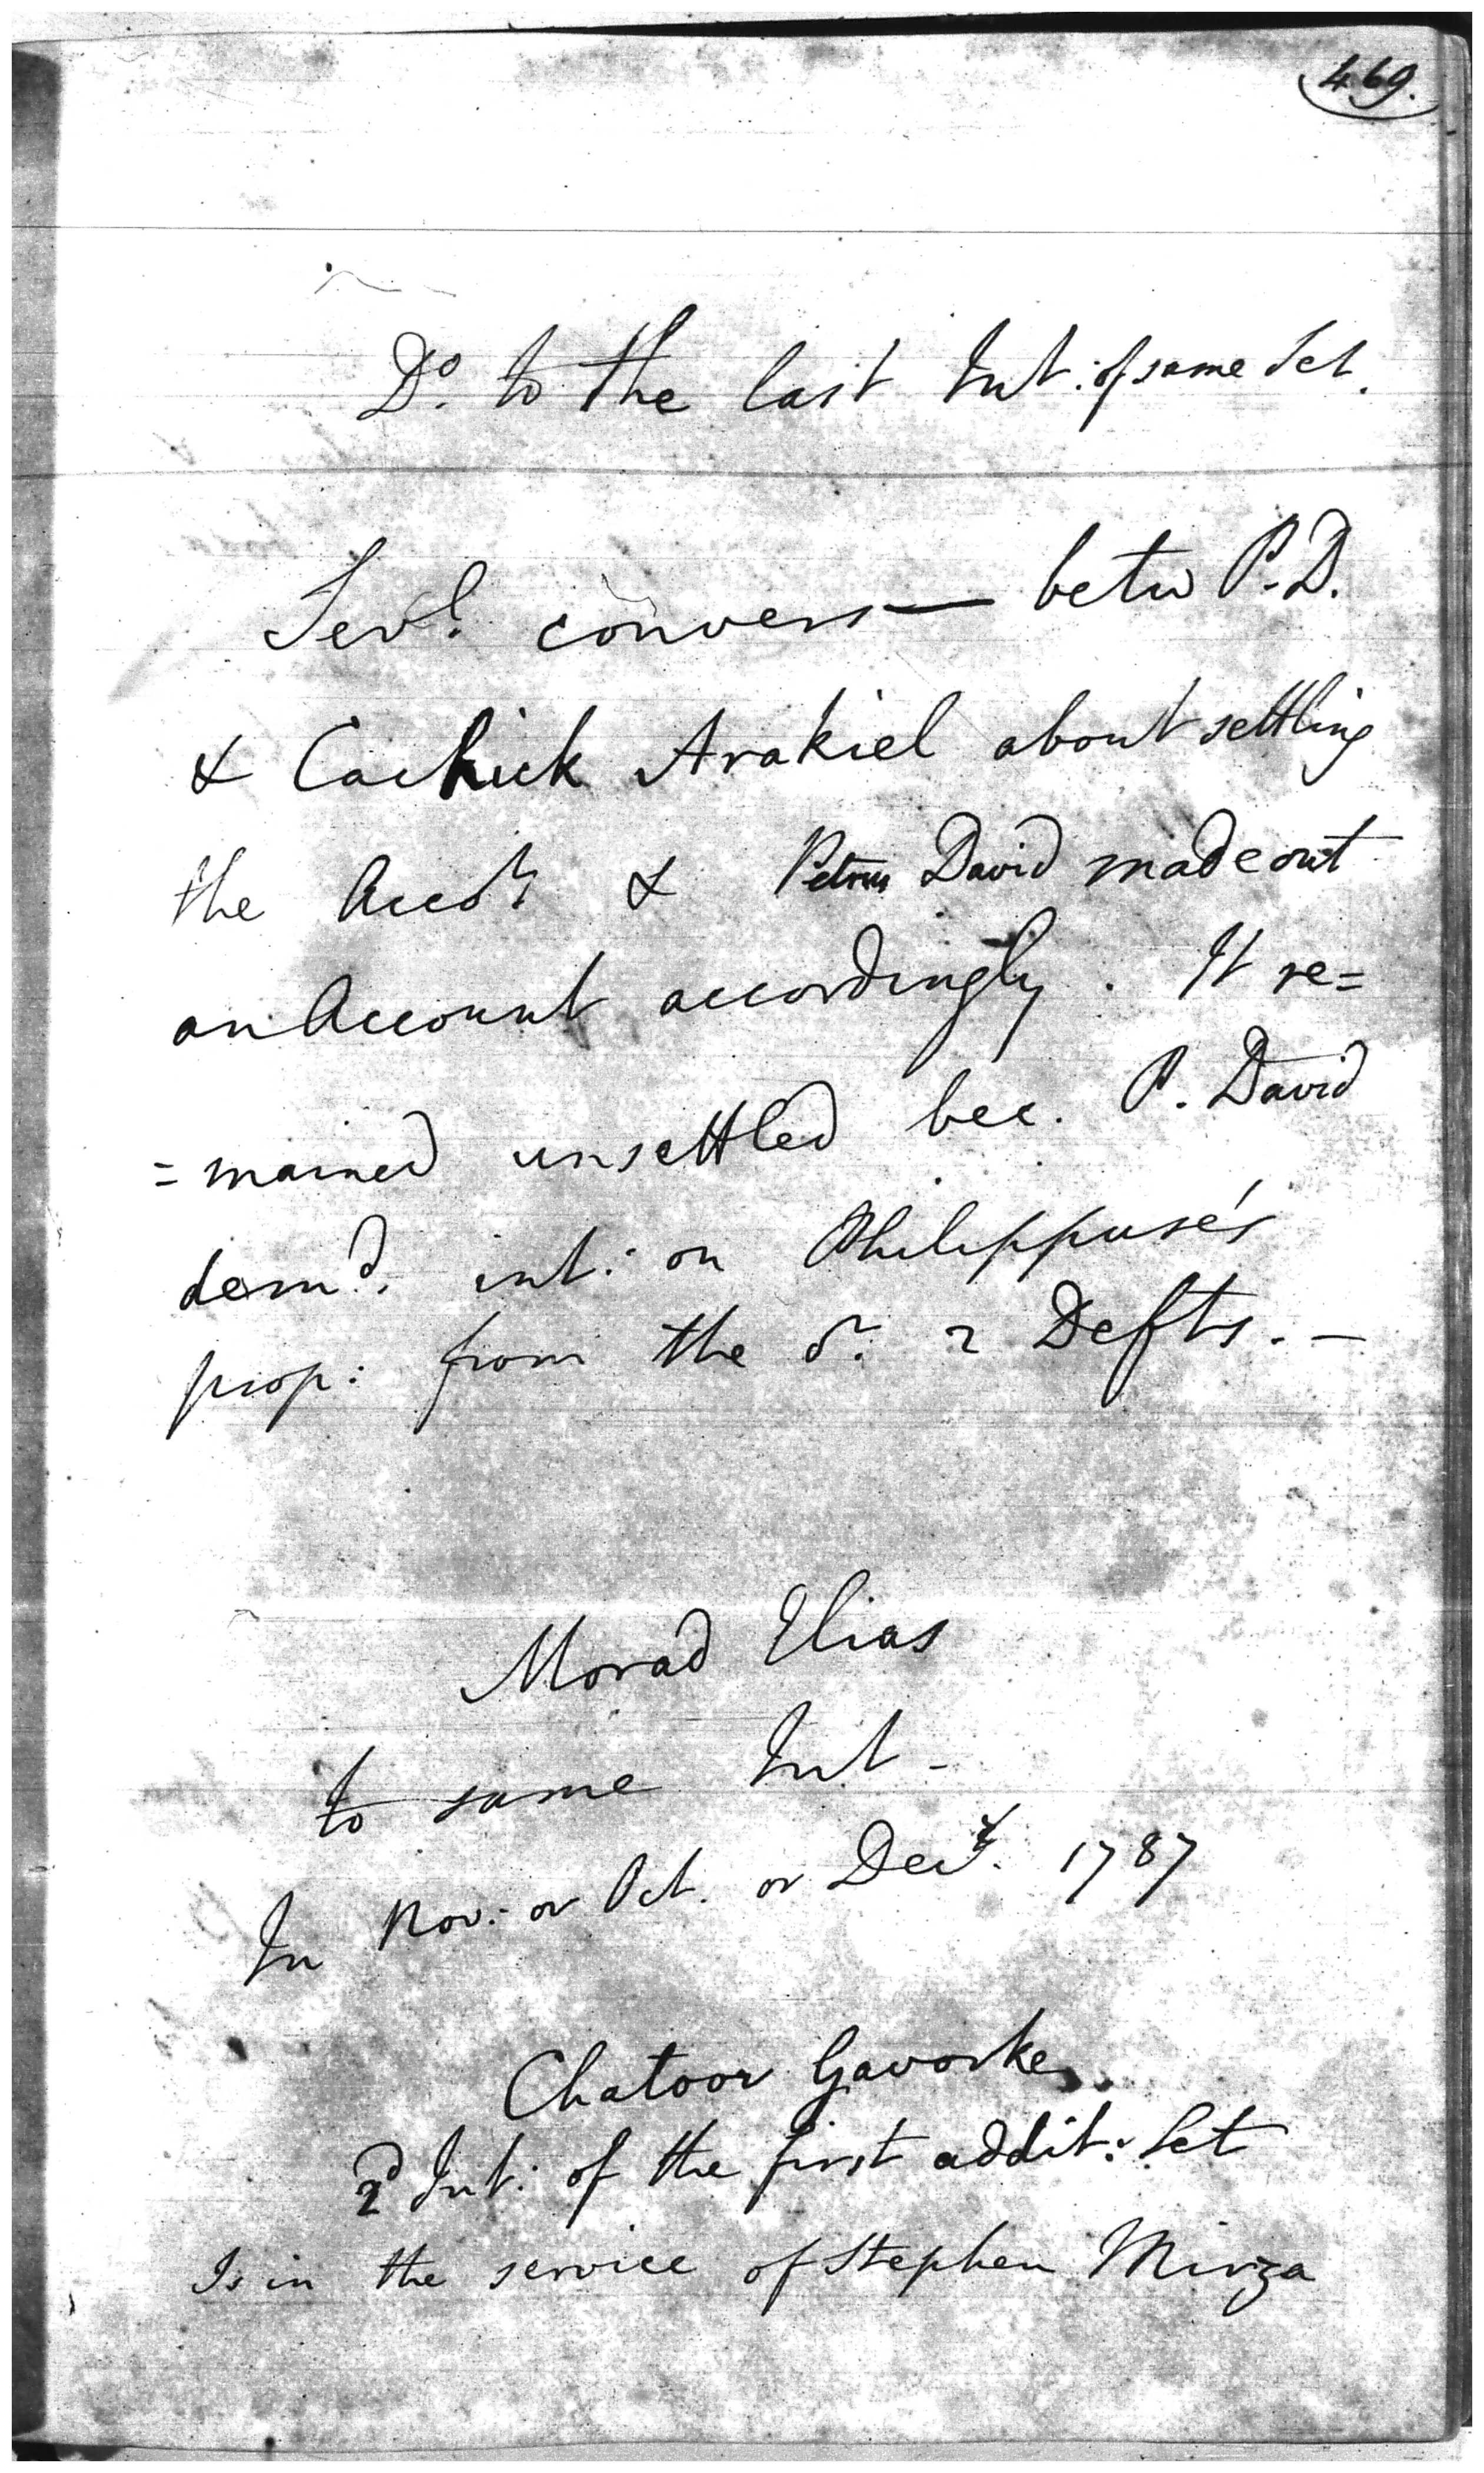 469.
Do. to the last Int. of same Set.
Sevl. convers— betw P. D.
& Cachick Arakiel about settling
the Accots & Petrus David made out
an Account accordingly. It re=
=mained unsettled bec. P. David
demd. int: on Philippuse's
prop: from the sd. 2 Defts. —
Morad Elias
to same Int -
In Nov: or Oct. or Decr. 1787
Chatoor Gavork
2d Int: of the first addit: Set
Is in the service of Stephen Mirza